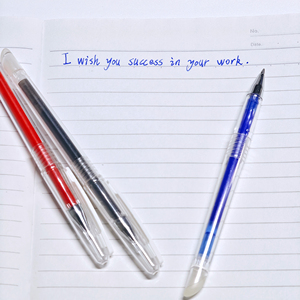 I wish you success in your work.